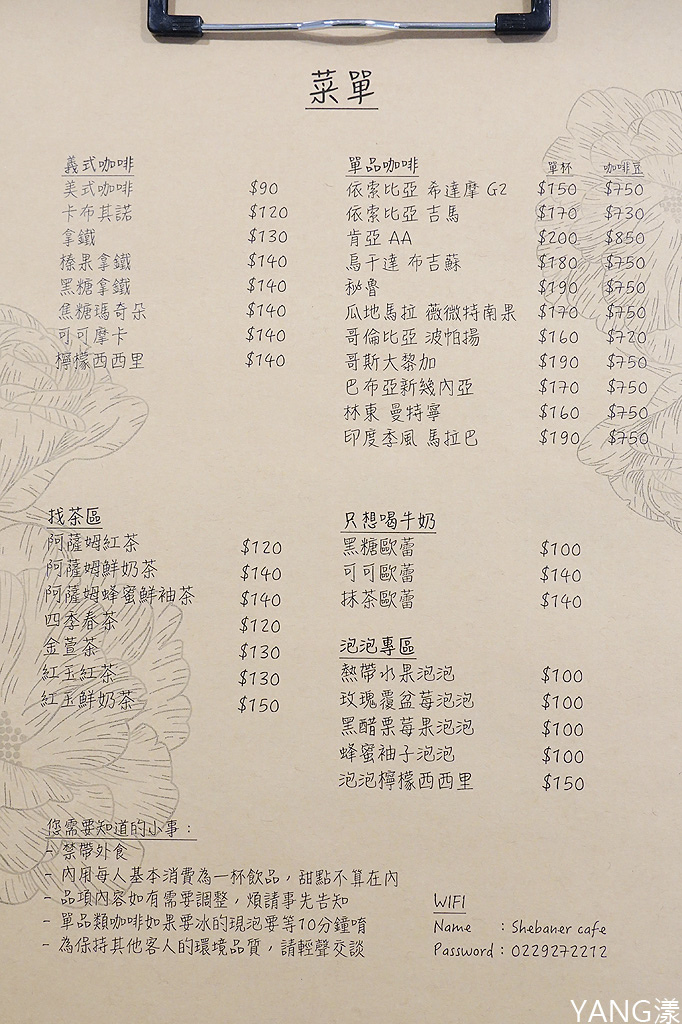 菜單
義式咖啡
美式咖啡 $90
卡布其諾 $120
拿鐵 $130
榛果拿鐵 $140
黑糖拿鐵 $140
焦糖瑪奇朵 $140
可可摩卡 $140
檸檬西西里 $140
單品咖啡 單杯 咖啡豆
依索比亞 希達摩 G2 $150 $750
依索比亞 吉馬 $170 $730
肯亞 AA $200 $850
烏干達 布吉蘇 $180 $750
秘魯 $190 $750
瓜地馬拉 薇薇特南果 $170 $750
哥倫比亞 波帕揚 $160 $720
哥斯大黎加 $190 $750
巴布亞新幾內亞 $170 $750
林東 曼特寧 $160 $750
印度季風 馬拉巴 $190 $750
找茶區
阿薩姆紅茶 $120
阿薩姆鮮奶茶 $140
阿薩姆蜂蜜鮮柚茶 $140
四季春茶 $120
金萱茶 $130
紅玉紅茶 $130
紅玉鮮奶茶 $150
只想喝牛奶
黑糖歐蕾 $100
可可歐蕾 $140
抹茶歐蕾 $140
泡泡專區
熱帶水果泡泡 $100
玫瑰覆盆莓泡泡 $100
黑醋栗莓果泡泡 $100
蜂蜜柚子泡泡 $100
泡泡檸檬西西里 $150
您需要知道的小事：
- 禁帶外食
- 內用每人基本消費為一杯飲品，甜點不算在內
- 品項內容如有需要調整，煩請事先告知
- 單品類咖啡如果要冰的現泡要等10分鐘唷
- 為保持其他客人的環境品質，請輕聲交談
WIFI
Name : Shebaner cafe
Password : 0229272212
YANG漾